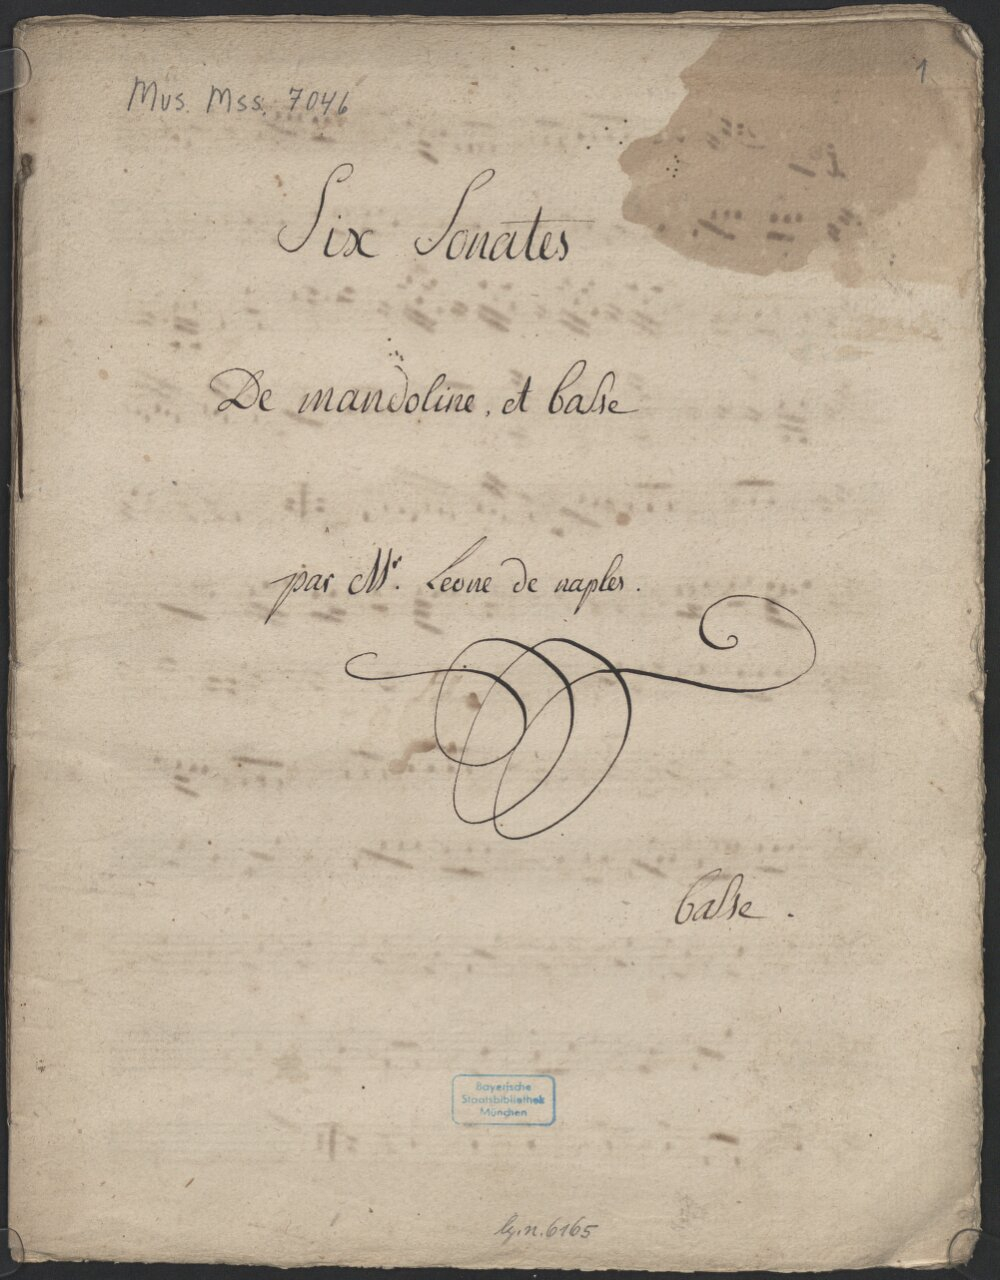 1
Mus. Mss. 7046
Six Sonates
De mandoline, et basse
par Mr. Leone de naples.
basse.
Bayerische
Staatsbibliothek
München